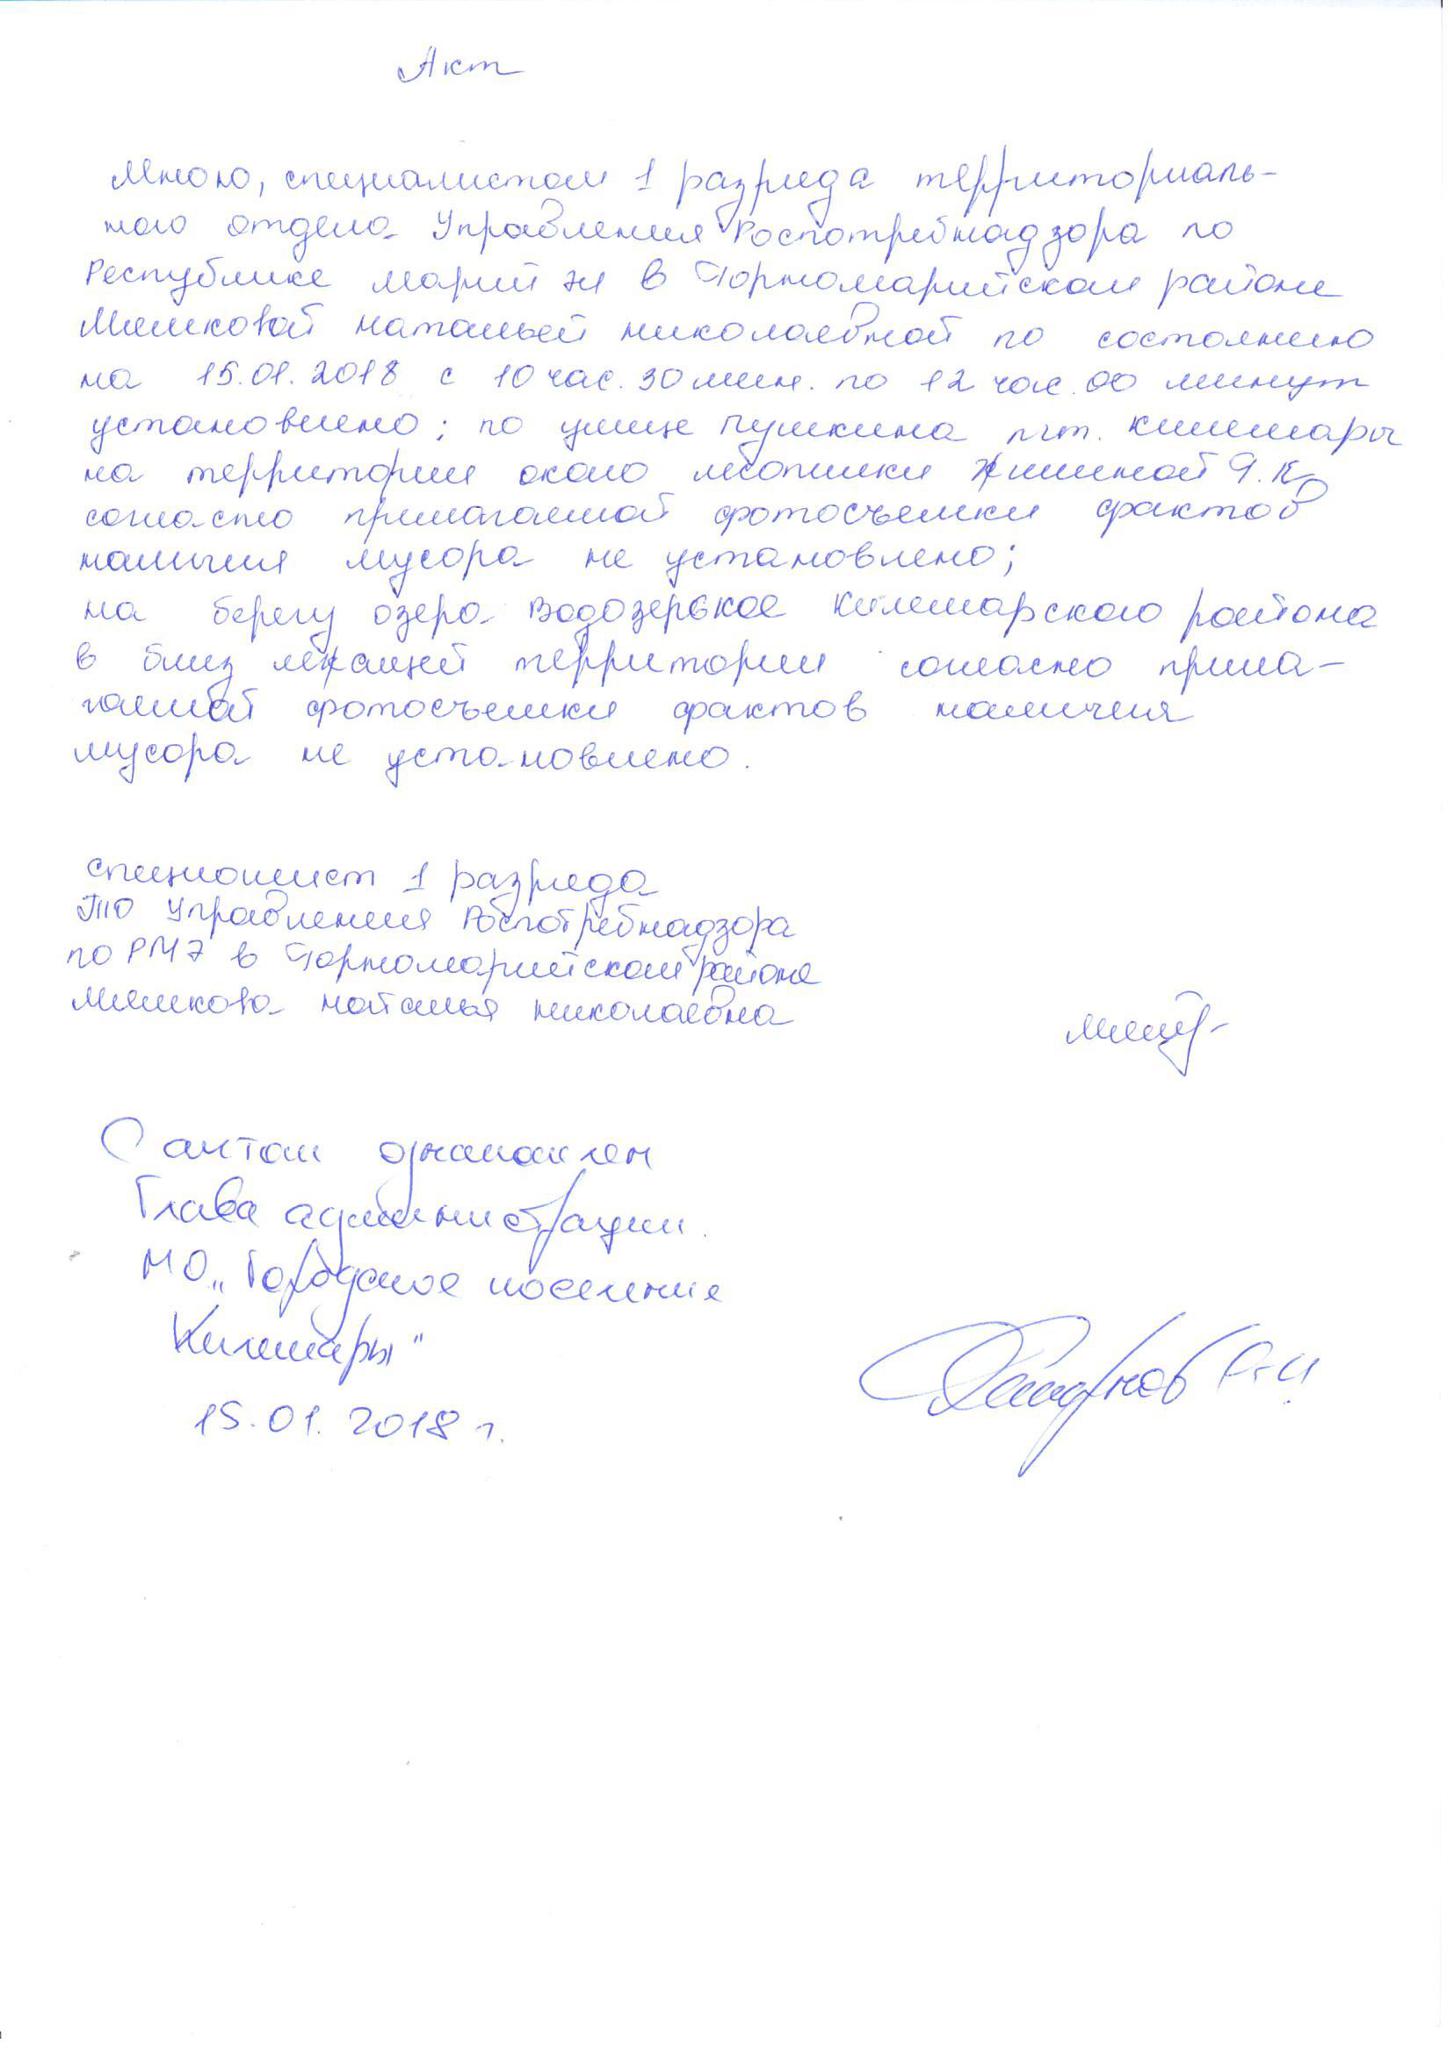 Акт
Мною, специалистом 1 разряда территориаль-
ного отдела Управления Роспотребнадзора по
Республике Марий Эл в Горномарийском районе
Мешковой Натальей Николаевной по состоянию
на 15.01.2018 с 10 час. 30 мин. по 12 час. 00 минут
установлено; по улице Пушкина пгт. Килемары
на территории около лесопилки Жилиной Я.К.
согласно прилагаемой фотосъемки фактов
наличия мусора не установлено;
на берегу озера Водозерское Килемарского района
в близ лежащей территории согласно прила-
гаемой фотосъемки фактов наличия
мусора не установлено.
специалист 1 разряда
ТО Управления Роспотребнадзора
по РМЭ в Горномарийском районе
Мешкова Наталья Николаевна
С актом ознакомлен
Глава администрации
МО „Городское поселение
Килемары"
15.01.2018 г.